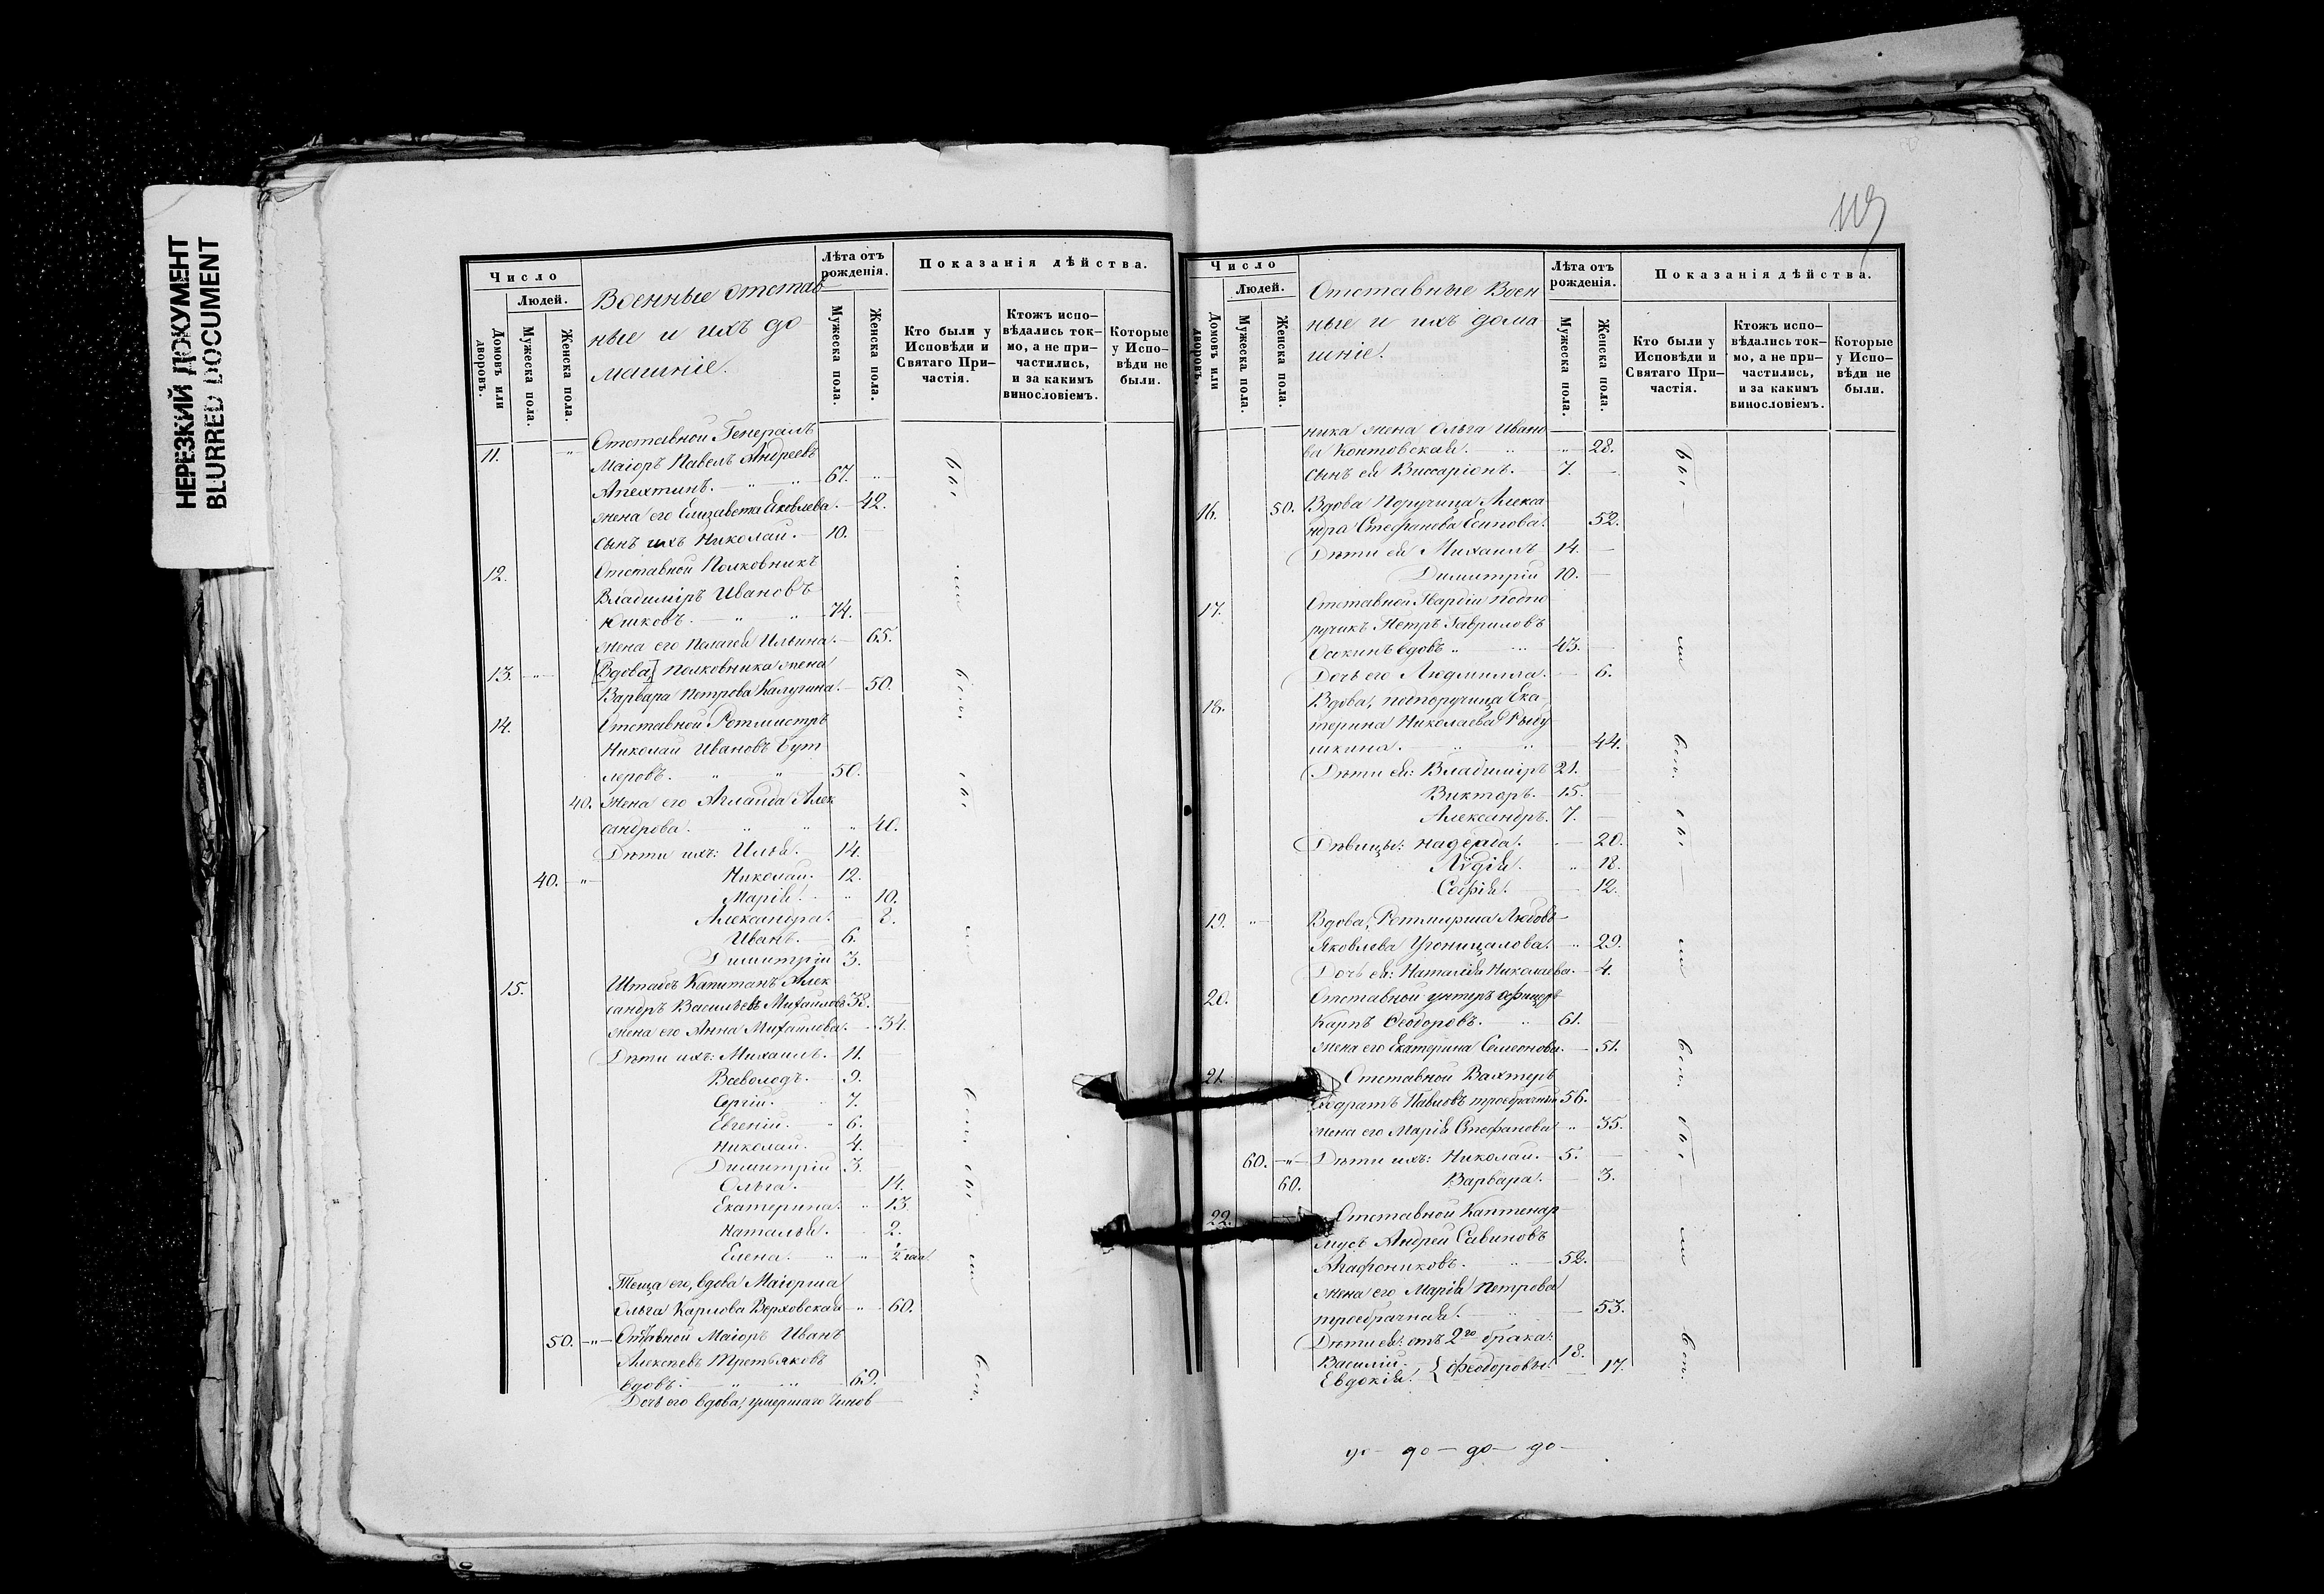 НЕРЕЗКИЙ ДОКУМЕНТ
BLURRED DOCUMENT
Число
Людей.
Домовъ или дворовъ.
Мужеска пола.
Женска пола.
Военные отстав-
ные и ихъ до-
машніе.
Лѣта отъ рожденія.
Мужеска пола.
Женска пола.
Показанія дѣйства.
Кто были у Исповѣди и Святаго Причастія.
Ктожъ исповѣдались токмо, а не причастились, и за какимъ винословіемъ.
Которые у Исповѣди не были.
11. Отставной Генералъ
Маіоръ Павелъ Андреевъ
Апехтинъ. 67.
жена его Елизавета Яковлева. 42.
сынъ ихъ Николай. 10.
12. Отставной Полковникъ
Владиміръ Ивановъ
Юшковъ. 74.
жена его Пелагея Ильина. 65.
13. [Вдова] Полковника жена
Варвара Петрова Калугина. 50.
14. Отставной Ротмистръ
Николай Ивановъ Бут
леровъ. 50.
40. жена его Аглаида Алек
сандрова. 40.
Дѣти ихъ: Илья. 14.
40. Николай. 12.
Марія. 10.
Александра.
Иванъ. 6.
Димитрій 3.
15. Штабсъ Капитанъ Алек
сандръ Васильевъ Михаиловъ 38.
жена его Анна Михаилова. 34.
Дѣти ихъ: Михаилъ. 11.
Всеволодъ. 9.
Сергій. 7.
Евгеній. 6.
Николай. 4.
Димитрій 3.
Ольга. 14.
Екатерина. 13.
Наталья. 2.
Елена. ½ года
Теща его, вдова Маіорша
Ольга Карлова Верховская 60.
50. Отставной Маіоръ Иванъ
Алексѣевъ Третьяковъ
вдовъ. 69.
Дочь его вдова, умершаго чинов
были
у исп.
были
у исп.
119
Число
Людей.
Домовъ или дворовъ.
Мужеска пола.
Женска пола.
Отставные Воен
ные и ихъ дома
шніе.
Лѣта отъ рожденія.
Мужеска пола.
Женска пола.
Показанія дѣйства.
Кто были у Исповѣди и Святаго Причастія.
Ктожъ исповѣдались токмо, а не причастились, и за какимъ винословіемъ.
Которые у Исповѣди не были.
ника жена Ольга Ивано
ва Контовская. 28.
сынъ ея Виссаріонъ. 7.
16. 50. Вдова Поручица Алекса
ндра Стефанова Есипова. 52.
Дѣти ея Михаилъ 14.
Димитрій 10.
17. Отставной Гвардіи Подпо
ручикъ Петръ Гавриловъ
Осокинъ вдовъ 43.
Дочь его Людмилла. 6.
18. Вдова, подпоручица Ека-
терина Николаева Рыбу
шкина. 44.
Дѣти ея: Владиміръ 21.
Викторъ. 15.
Александръ. 7.
Дѣвицы: Надежда. 20.
Лидія. 18.
Софія. 12.
19. Вдова, Ротмирша Любовь
Яковлева 29.
Дочь ея: Наталія Николаева. 4.
20. Отставной унтеръ офицеръ
Карпъ Ѳеодоровъ. 61.
жена его Екатерина Семенова. 51.
21. Отставной Вахтеръ
Павловъ троебрачный 56.
жена его Марія Стефанова 35.
60. Дѣти ихъ: Николай. 5.
60. Варвара. 3.
22. Отставной Каптенар
мусъ Андрей Савиновъ
Агафониковъ. 52.
жена его Марія Петрова
троебрачная. 53.
Дѣти ея: отъ 2го брака:
Василій. 18.
Евдокія. } Ѳеодоровы. 17.
до — до — до —